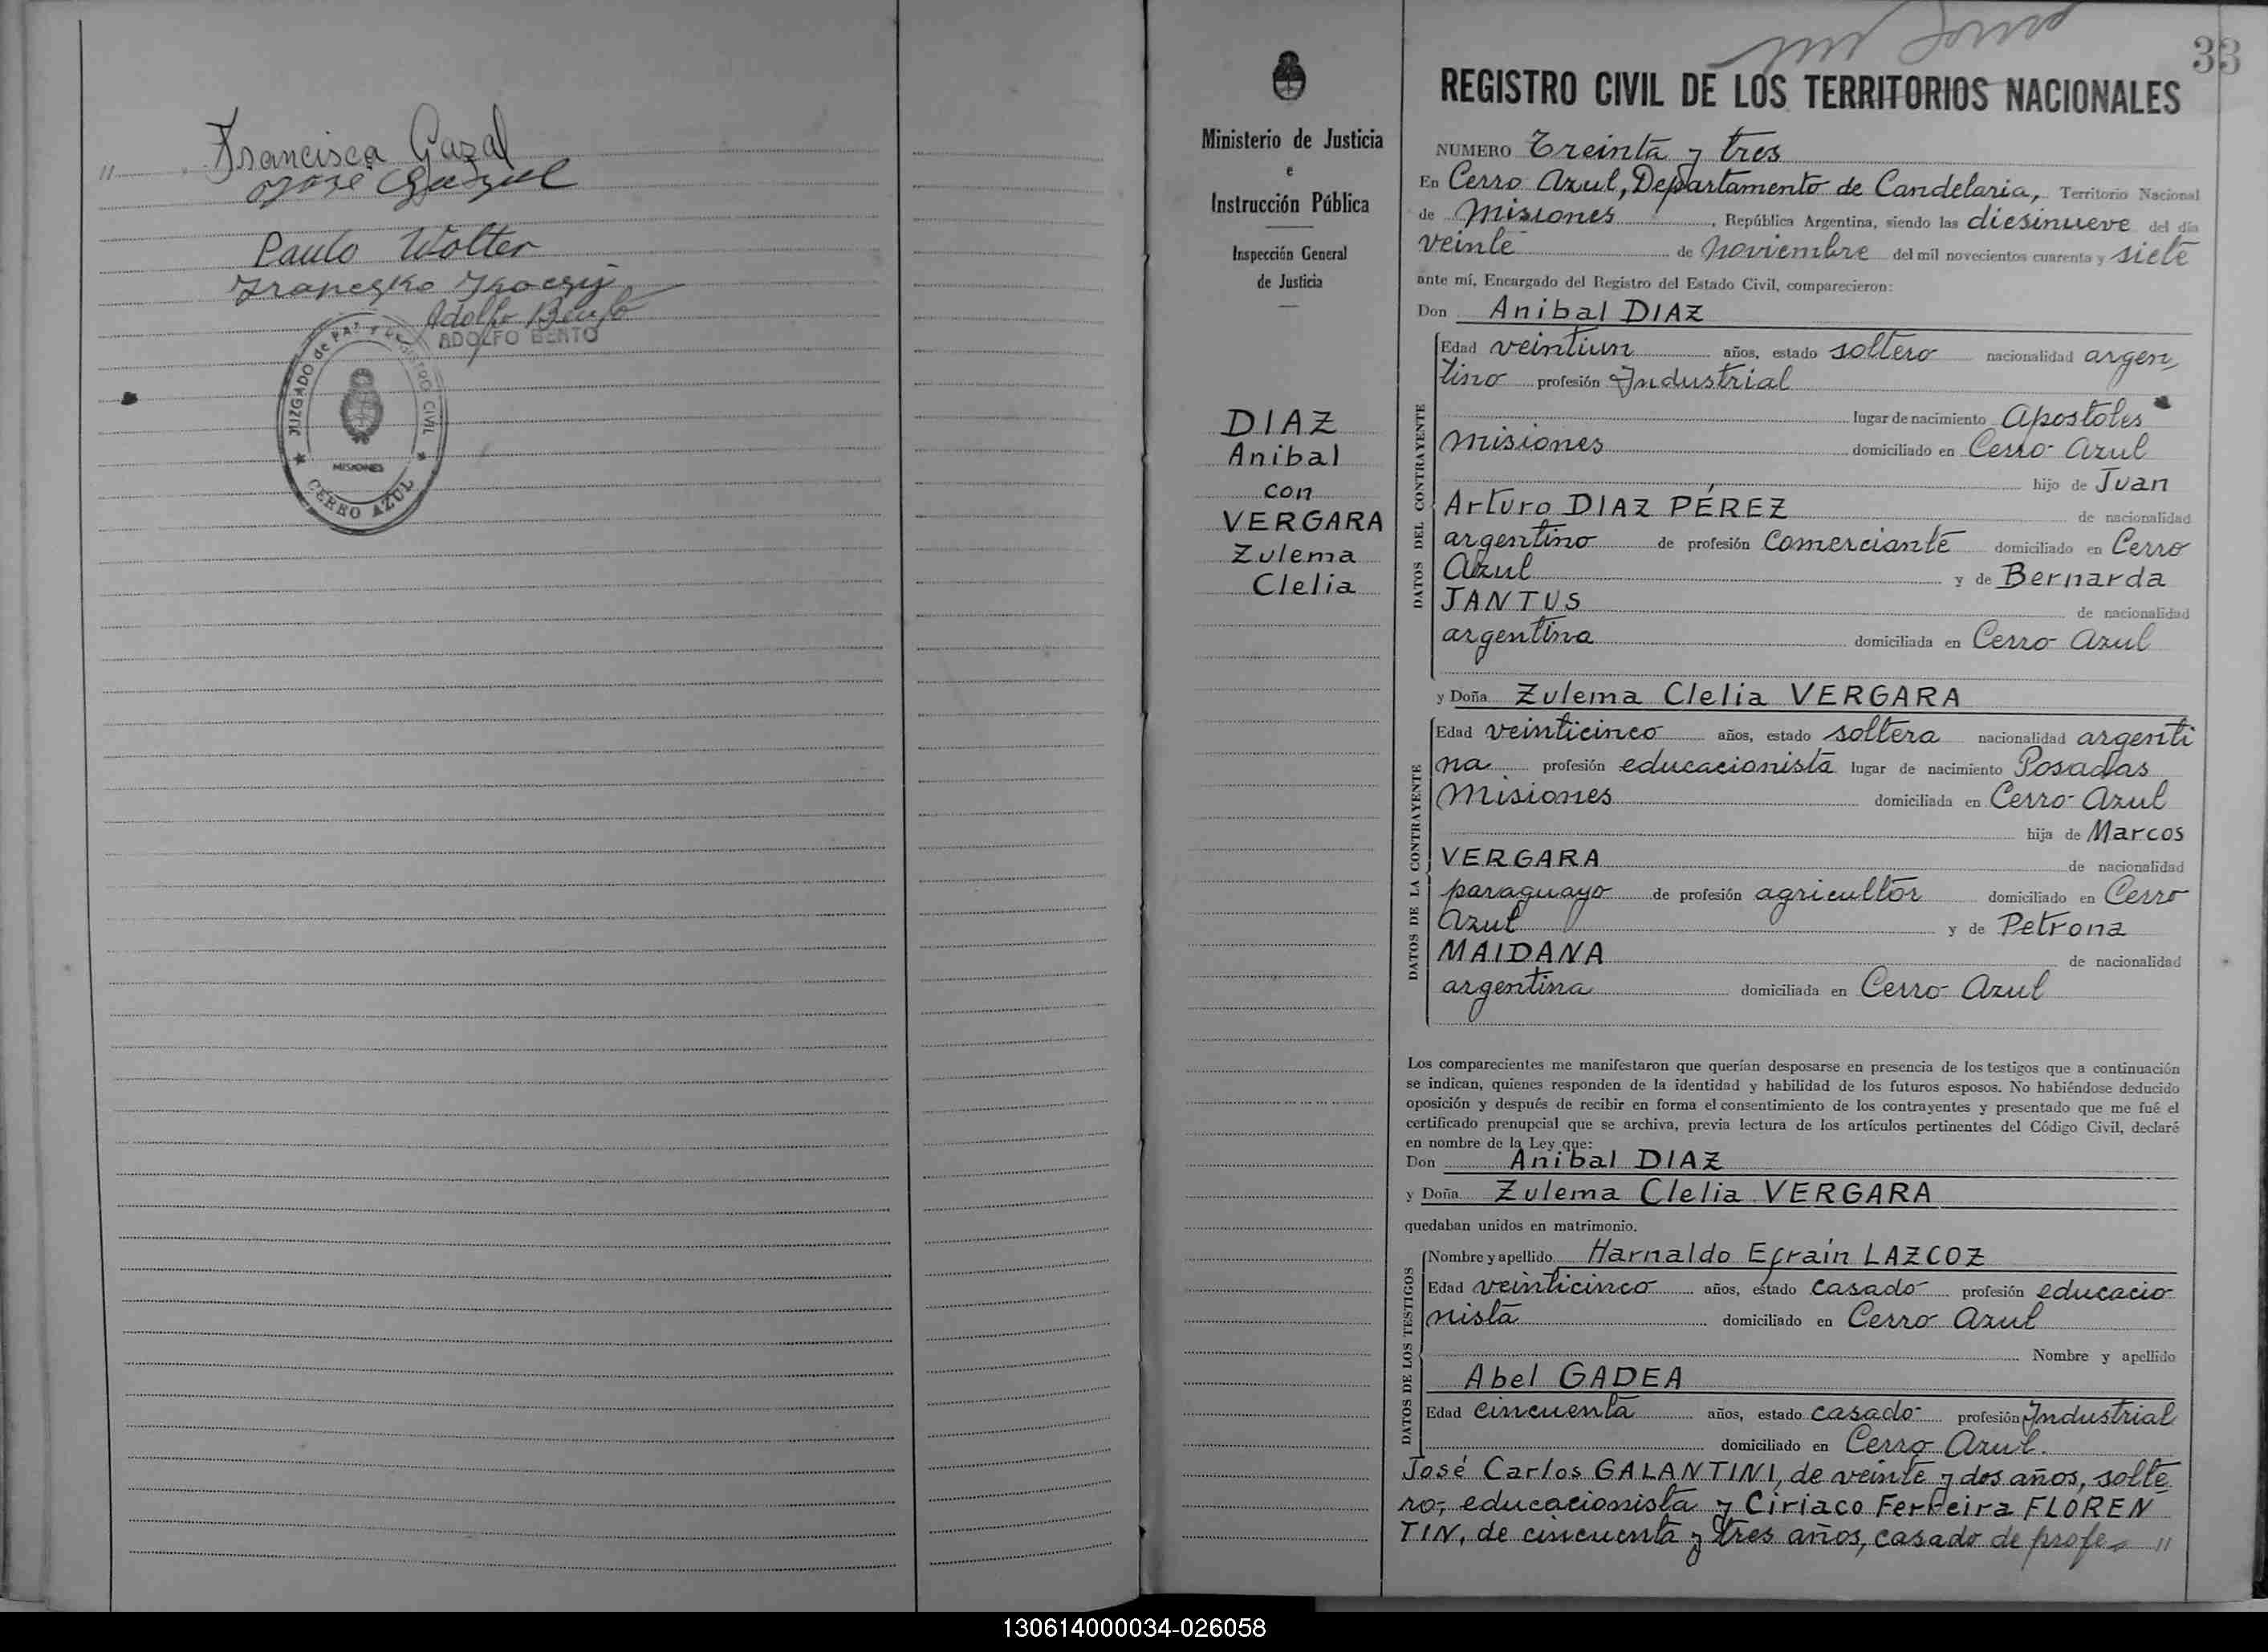 Francisca Gazal
José Gazal
Paulo Wolter
Adolfo Bento
ADOLFO BENTO
JUZGADO de PAZ Y REGISTRO CIVIL
MISIONES
CERRO AZUL
33
Ministerio de Justicia
e
Instrucción Pública
Inspección General
de Justicia
DIAZ
Anibal
con
VERGARA
Zulema
Clelia
REGISTRO CIVIL DE LOS TERRITORIOS NACIONALES
NUMERO Treinta y tres
En Cerro Azul, Departamento de Candelaria, Territorio Nacional
de Misiones, República Argentina, siendo las diesinueve del día
veinte de Noviembre del mil novecientos cuarenta y siete
ante mí, Encargado del Registro del Estado Civil, comparecieron:
Don Anibal DIAZ
DATOS DEL CONTRAYENTE
Edad veintiun años, estado soltero nacionalidad argen
tino profesión Industrial
lugar de nacimiento Apostoles
Misiones domiciliado en Cerro-Azul
hijo de Juan
Arturo DIAZ PÉREZ de nacionalidad
argentino de profesión Comerciante domiciliado en Cerro
Azul y de Bernarda
JANTUS de nacionalidad
argentina domiciliada en Cerro-Azul
y Doña Zulema Clelia VERGARA
DATOS DE LA CONTRAYENTE
Edad veinticinco años, estado soltera nacionalidad argenti
na profesión educacionista lugar de nacimiento Posadas
Misiones domiciliada en Cerro-Azul
hija de Marcos
VERGARA de nacionalidad
paraguayo de profesión agricultor domiciliado en Cerro
Azul y de Petrona
MAIDANA de nacionalidad
argentina domiciliada en Cerro-Azul
Los comparecientes me manifestaron que querían desposarse en presencia de los testigos que a continuación
se indican, quienes responden de la identidad y habilidad de los futuros esposos. No habiéndose deducido
oposición y después de recibir en forma el consentimiento de los contrayentes y presentado que me fué el
certificado prenupcial que se archiva, previa lectura de los artículos pertinentes del Código Civil, declaré
en nombre de la Ley que:
Don Anibal DIAZ
y Doña Zulema Clelia VERGARA
quedaban unidos en matrimonio.
DATOS DE LOS TESTIGOS
Nombre y apellido Harnaldo Efraín LAZCOZ
Edad veinticinco años, estado casado profesión educacio
nista domiciliado en Cerro Azul
Nombre y apellido
Abel GADEA
Edad cincuenta años, estado casado profesión Industrial
domiciliado en Cerro Azul.
José Carlos GALANTINI, de veinte y dos años, solte
ro, educacionista y Ciriaco Ferreira FLOREN
TIN, de cincuenta y tres años, casado de profe- "
130614000034-026058